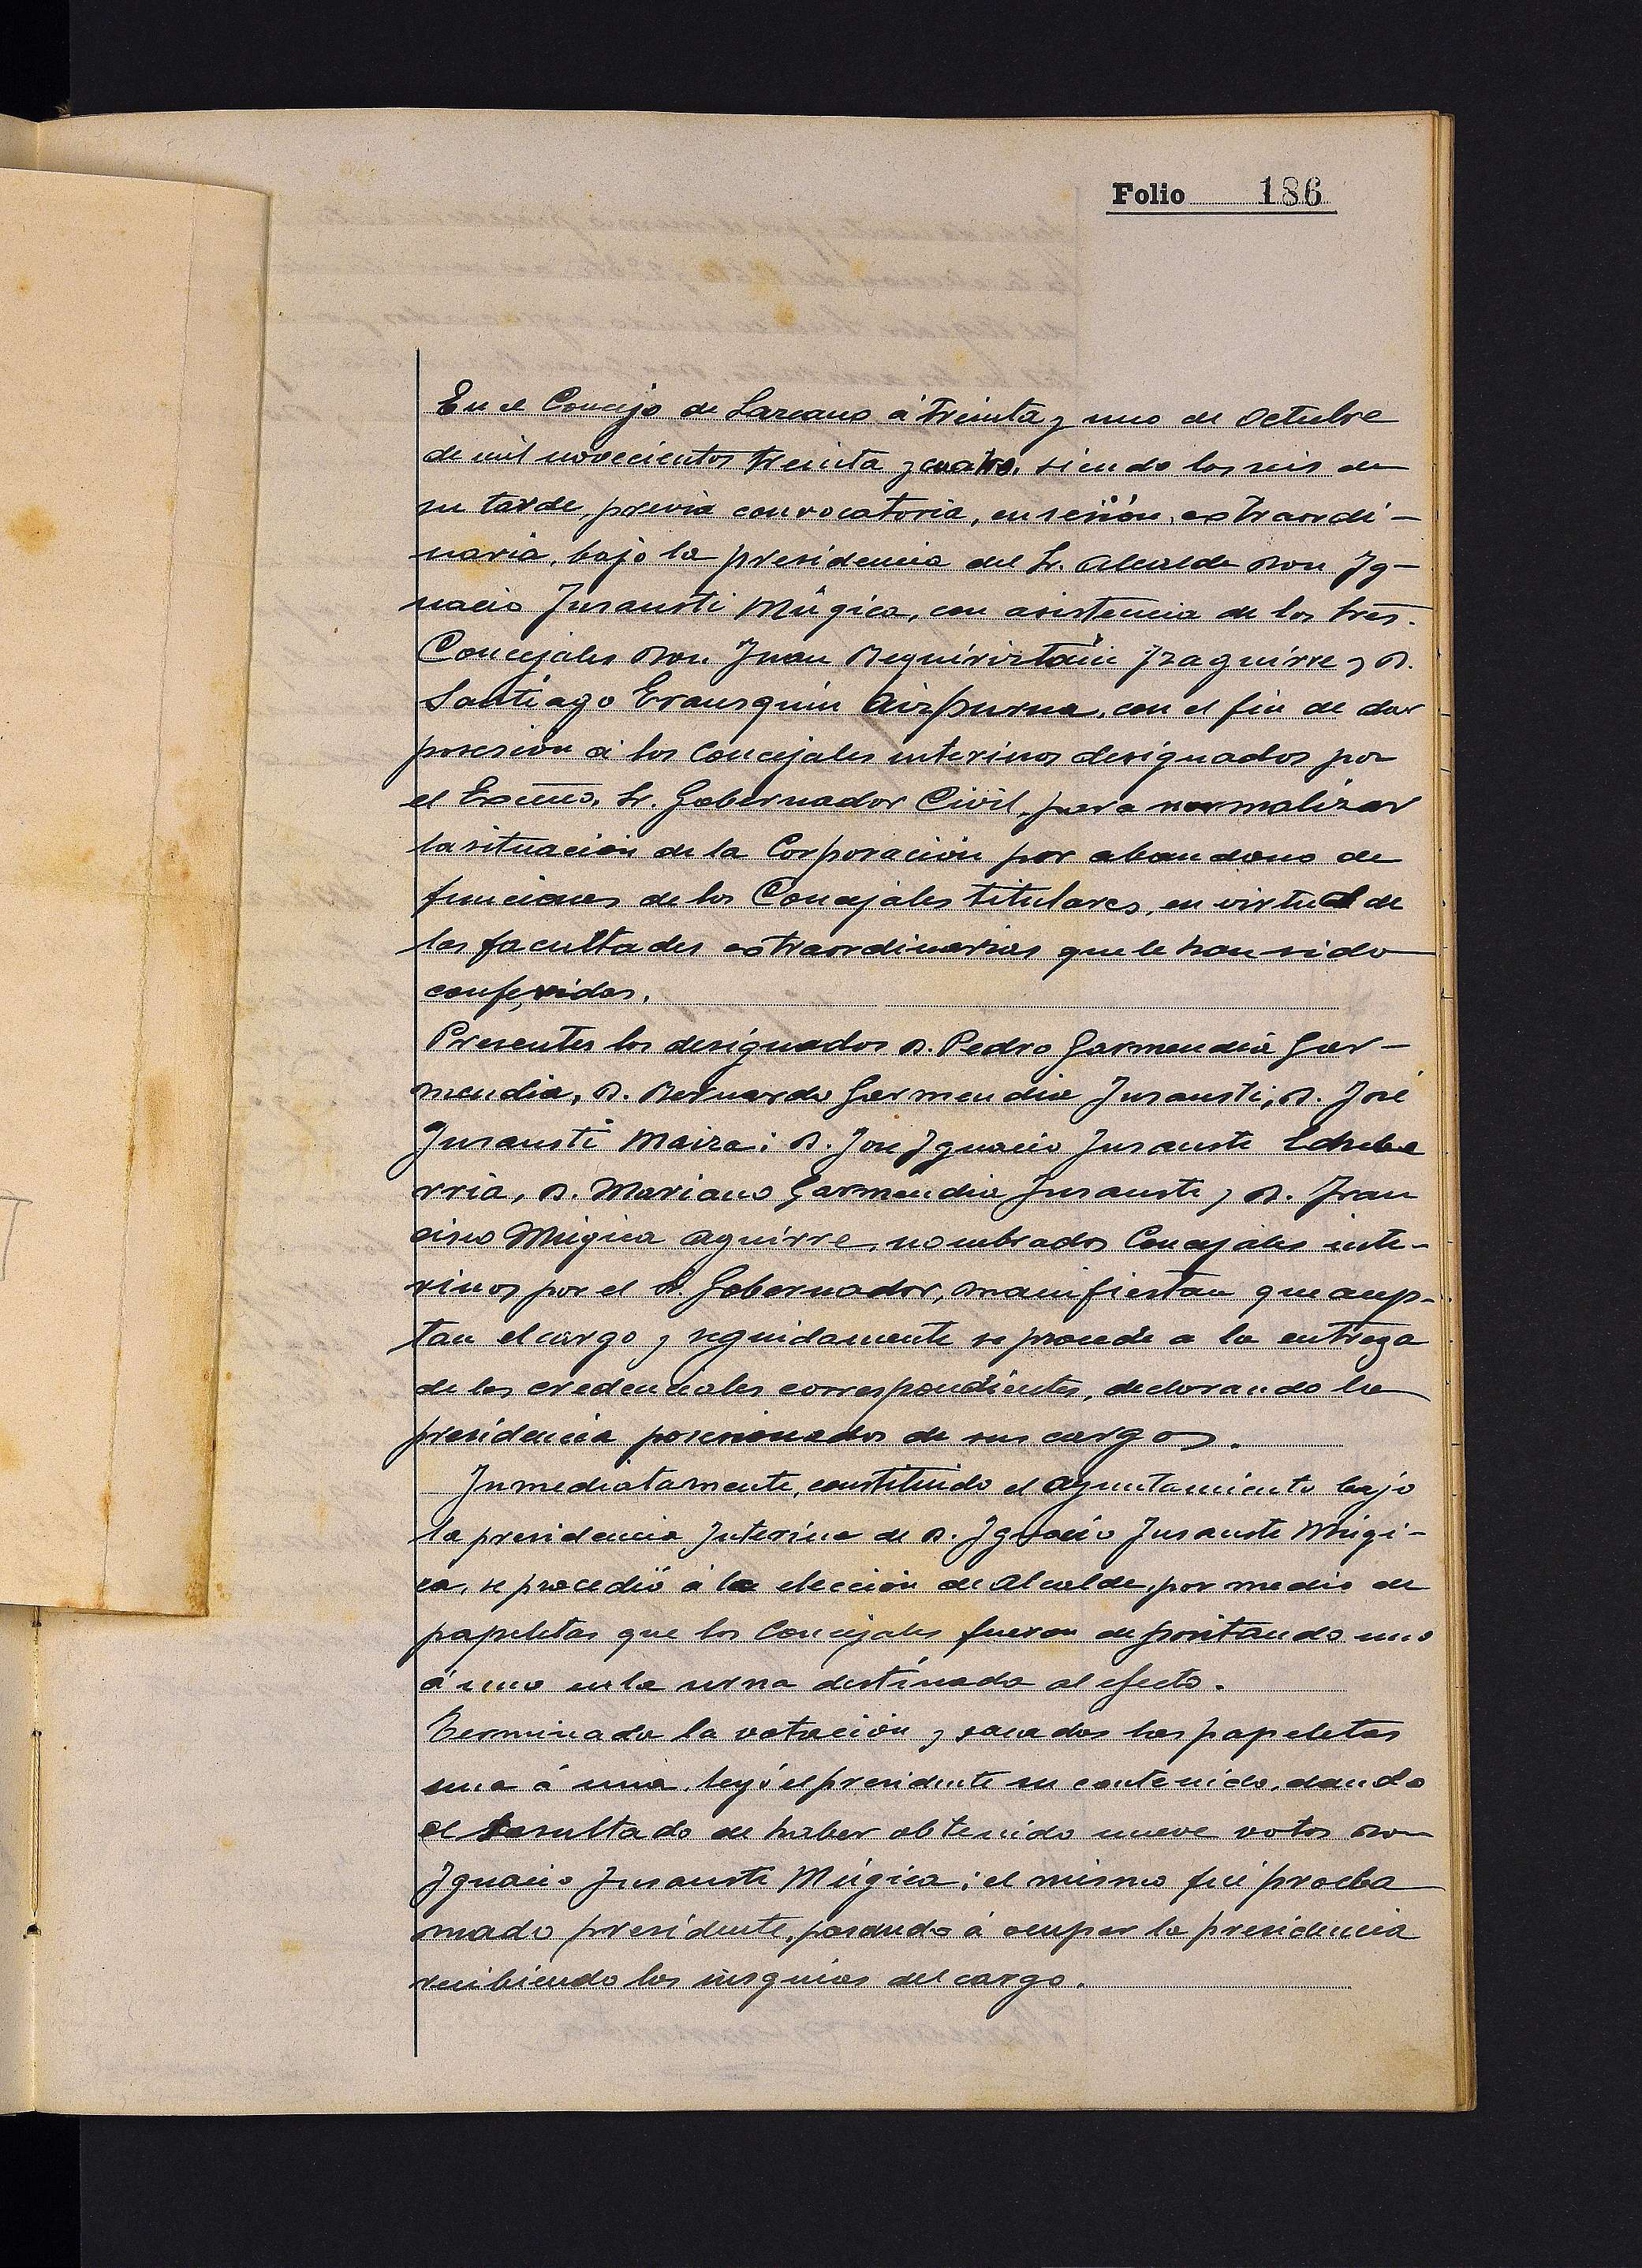 Folio 186
En el Concejo de Lazcano á treinta y uno de Octubre
de mil novecientos treinta y cuatro, siendo las seis de
su tarde, previa convocatoria, en sesión extraordi-
naria, bajo la presidencia del Sr. Alcalde Don Ig-
nacio Insausti Múgica, con asistencia de los Sres.
Concejales Don Juan Beguiristáin Izaguirre y D.
Santiago Erausquin Aizpurua, con el fin de dar
posesión á los Concejales interinos designados por
el Excmo. Sr. Gobernador Civil, para normalizar
la situación de la Corporación por abandono de
funciones de los Concejales titulares, en virtud de
las facultades extraordinarias que le han sido
conferidas.
Presentes los designados D. Pedro Garmendia Gar-
mendia, D. Bernardo Garmendia Insausti, D. José
Insausti Maiza; D. José Ignacio Insausti Echebe
rria, D. Mariano Garmendia Insausti y D. Fran
cisco Múgica Aguirre, nombrados Concejales inte-
rinos por el Sr. Gobernador, manifiestan que acep-
tan el cargo y seguidamente se procede a la entrega
de las credenciales correspondientes, declarando la
presidencia posesionados de sus cargos.
Inmediatamente, constituido el Ayuntamiento bajo
la presidencia Interina de D. Ignacio Insausti Múgi-
ca, se procedió á la elección de Alcalde, por medio de
papeletas que los Concejales fueron depositando uno
á uno en la urna destinada al efecto.
Terminada la votación y sacadas las papeletas
una á una, leyó el presidente su contenido, dando
el resultado de haber obtenido nueve votos Don
Ignacio Insausti Múgica; el mismo fué procla
mado presidente, pasando á ocupar la presidencia
recibiendo las insignias del cargo.